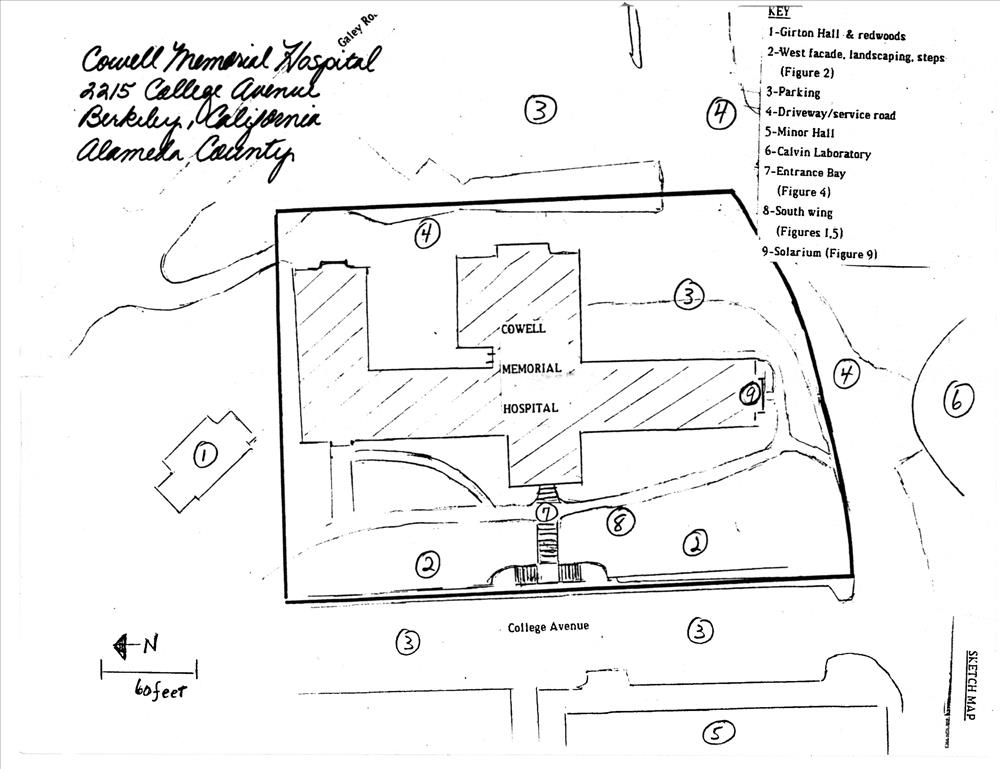 Cowell Memorial Hospital
2215 College Avenue
Berkeley, California
Alameda County
Galey Ro
KEY
1-Girton Hall & redwoods
2-West facade, landscaping, steps
(Figure 2)
3-Parking
4-Driveway/service road
5-Minor Hall
6-Calvin Laboratory
7-Entrance Bay
(Figure 4)
8-South wing
(Figures 1,5)
9-Solarium (Figure 9)
3
4
4
3
COWELL
MEMORIAL
HOSPITAL
4
9
6
1
7
8
2
2
College Avenue
3
3
N
60 feet
5
SKETCH MAP